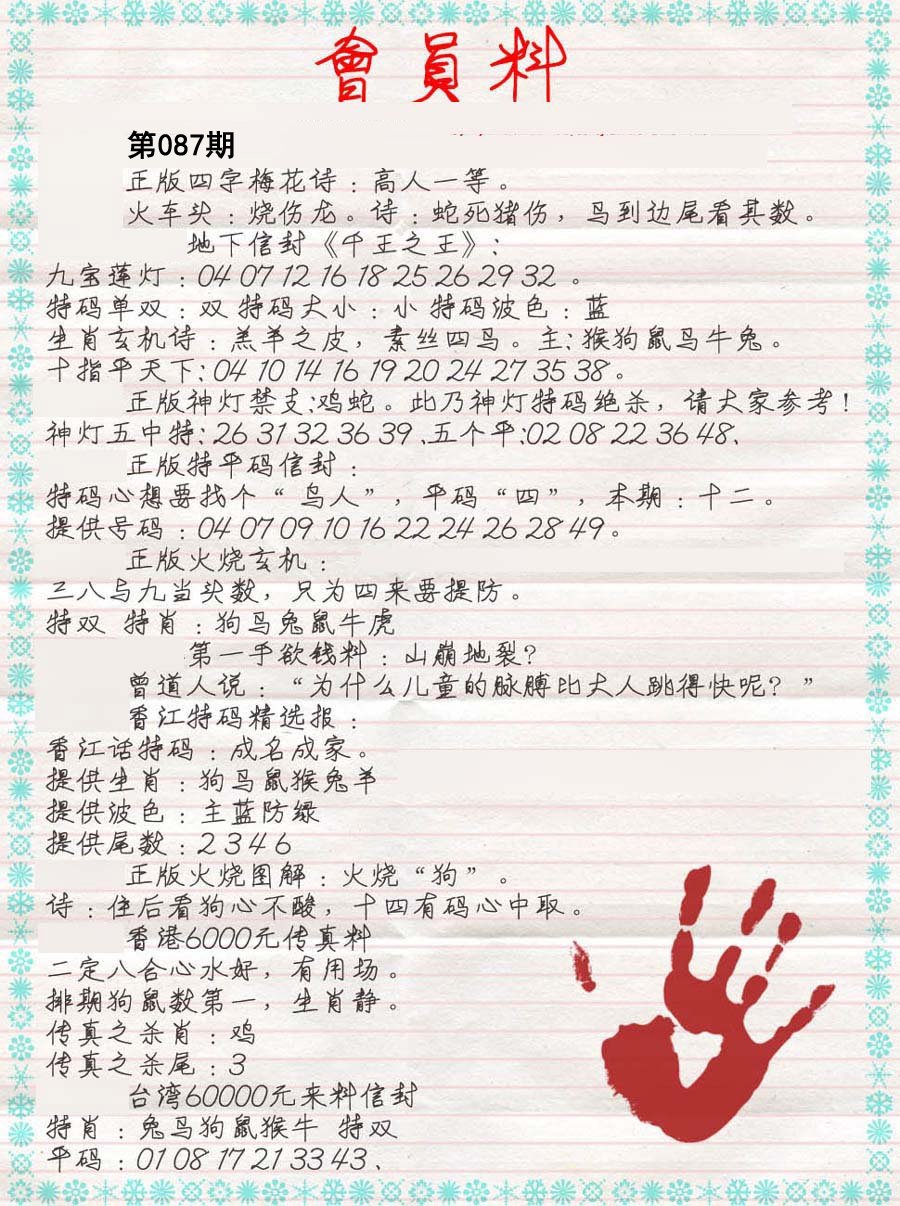 會員料
第087期
正版四字梅花诗：高人一等。
火车头：烧伤龙。诗：蛇死猪伤，鸟到边尾看其数。
地下信封《千王之王》：
九宝莲灯：04 07 12 16 18 25 26 29 32 。
特码单双：双 特码大小：小 特码波色：蓝
生肖玄机诗：羔羊之皮，素丝四鸟。主：猴狗鼠鸟牛兔。
十指平天下：04 10 14 16 19 20 24 27 35 38。
正版神灯禁支:鸡蛇。此乃神灯特码绝杀，请大家参考！
神灯五中特：26 31 32 36 39 、五个平:02 08 22 36 48、
正版特平码信封：
特码心想要找个“鸟人”，平码“四”，本期：十二。
提供号码：04 07 09 10 16 22 24 26 28 49。
正版火烧玄机：
三八与九当头数，只为四来要提防。
特双 特肖：狗鸟兔鼠牛虎
第一手欲钱料：山崩地裂？
曾道人说：“为什么儿童的脉膊比大人跳得快呢？”
香江特码精选报：
香江话特码：成名成家。
提供生肖：狗鸟鼠猴兔羊
提供波色：主蓝防绿
提供尾数：2 3 4 6
正版火烧图解：火烧“狗”。
诗：住后看狗心不酸，十四有码心中取。
香港6000元传真料
二定八合心水好，有用场。
排期狗鼠数第一，生肖静。
传真之杀肖：鸡
传真之杀尾：3
台湾60000元来料信封
特肖：兔鸟狗鼠猴牛 特双
平码：01 08 17 21 33 43、